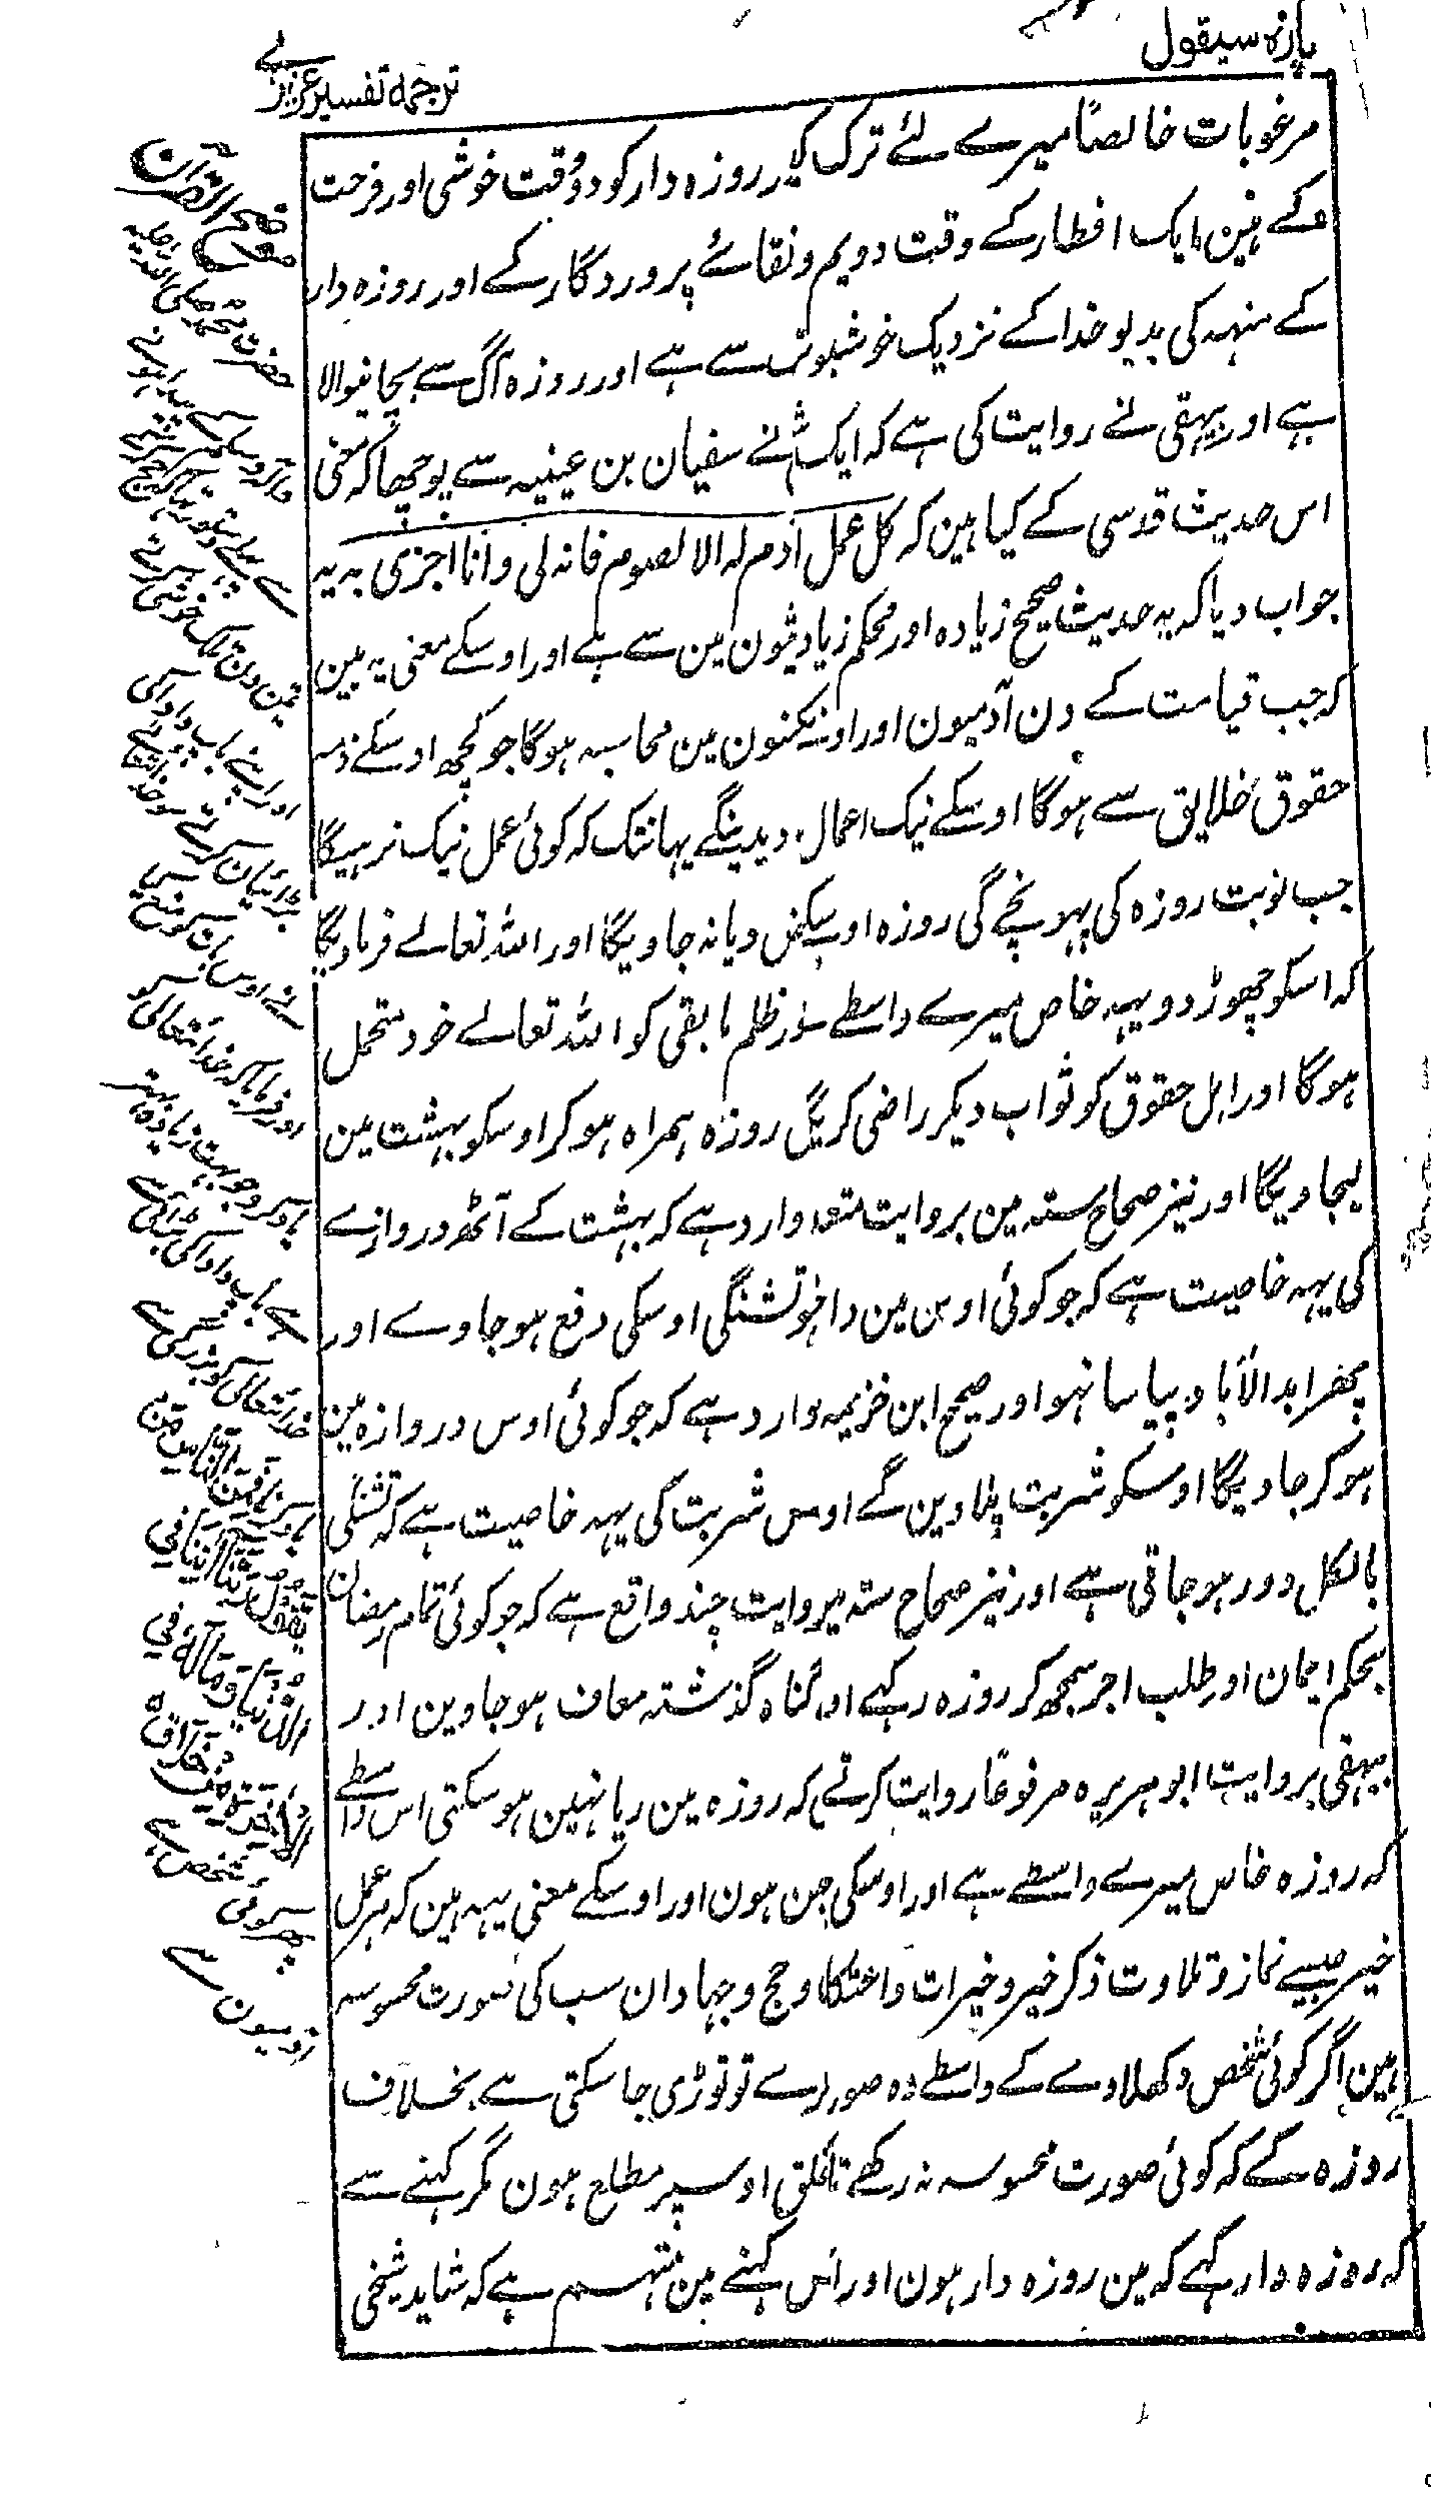 پارہ سیقول
ترجمہ تفسیر عزیزے
مرغوبات خالصاً میرے لئے ترک کیے روزہ دار کو دو وقت خوشی اور فرحت
کے ہین ایک افطار کے وقت دویم وقت لقائے پروردگار کے اور روزہ دار
کے منہہ کی بدبو خدا کے نزدیک خوشبو سے ہے اور روزہ آگ سے بچانیوالا
ہے اور بیہقی نے روایت کی ہے کہ ایک نے سفیان بن عینیہ سے پوچھا کہ معنی
اس حدیث قدسی کے کیا ہین کہ کل عمل آدم لہ الا لصوم فانہ لی وانا اجزی بہ یہ
جواب دیا کہ یہ حدیث صحیح زیادہ اور محکم زیادہ مین سے ہے اور اوسکے معنی یہ ہین
کہ جب قیامت کے دن آدمیون اور مین محاسبہ ہوگا جو کچھ اوسکے ذمہ
حقوق خلایق سے ہوگا اوسکے نیک اعمال دیدینگے یہانتک کہ کوئی عمل نیک نرہیگا
جب نوبت روزہ کی پہونچے گی روزہ دیا نہ جاویگا اور اللہ تعالے فرماویگا
کہ اسکو چھوڑ دو یہہ خاص میرے واسطے اور ظلم مابقی کو اللہ تعالے خود متحمل
ہوگا اور اہل حقوق کو ثواب دیکر راضی کریگا روزہ ہمراہ ہو کر اوسکو بہشت مین
لیجاویگا اور نیز صحاح ستہ مین بروایت متعدد وارد ہے کہ بہشت کے آٹھ دروازے
کی یہہ خاصیت ہے کہ جو کوئی اوس مین داخل ہو تشنگی اوسکی دفع ہو جاوے اور
پھر ابد الآباد پیاسا نہو اور صحیح ابن خزیمہ وارد ہے کہ جو کوئی اوس دروازہ مین
ہو کر جاویگا اوسکو شربت پلاوین گے اوس شربت کی یہہ خاصیت ہے کہ تشنگی
بالکل دور ہو جاتی ہے اور نیز صحاح ستہ بروایت چند واقع ہے کہ جو کوئی تمام رمضان
بحکم ایمان اور طلب اجر سمجھ کر روزہ رکہے گناہ گذشتہ معاف ہو جاوین اور
بیہقی بروایت ابو ہریرہ مرفوعاً روایت کرتے کہ روزہ مین ریا نہین ہو سکتی اس واسطے
کہ روزہ خاص میرے واسطے ہے اور اوسکی ہون اور اوسکے معنی یہہ ہین کہ ہر عمل
خیر جیسے نماز و تلاوت ذکر خیر و خیرات و اعتکاف و حج و جہاد ان سب کی صورت محسوسہ
ہین اگر کوئی شخص دکھلاوے کے واسطے وہ صورت توڑی جا سکتی ہے بخلاف
روزہ کے کہ کوئی صورت محسوسہ نہ رکھے تا خلق اوسپر مطلع ہون مگر کہنے سے
کہ روزہ دار کہے کہ مین روزہ دار ہون اور اس کہنے مین متہم ہے کہ شاید شیخی
موضح القرآن
حضرت محمد صلی اللہ علیہ
تین دن تلک خوشی کرتے
اور اپنے باپ دادا کی
بڑائیان کرتے خدا تعالے
نے اوس بات کو منع کیا
اور فرمایا کہ خدا تعالی کو
یاد کرو بہت زیادہ بہتر
ہے باپ دادا کی بڑائی سے
خدا تعالی کو بزرگی سے
یاد کرنا فَمِنَ النَّاسِ مَنْ
یَقُولُ رَبَّنَا آتِنَا فِي
الدُّنْيَا وَمَا لَهُ فِي
الْآخِرَةِ مِنْ خَلَاقٍ
پھر کوئی شخص ہے